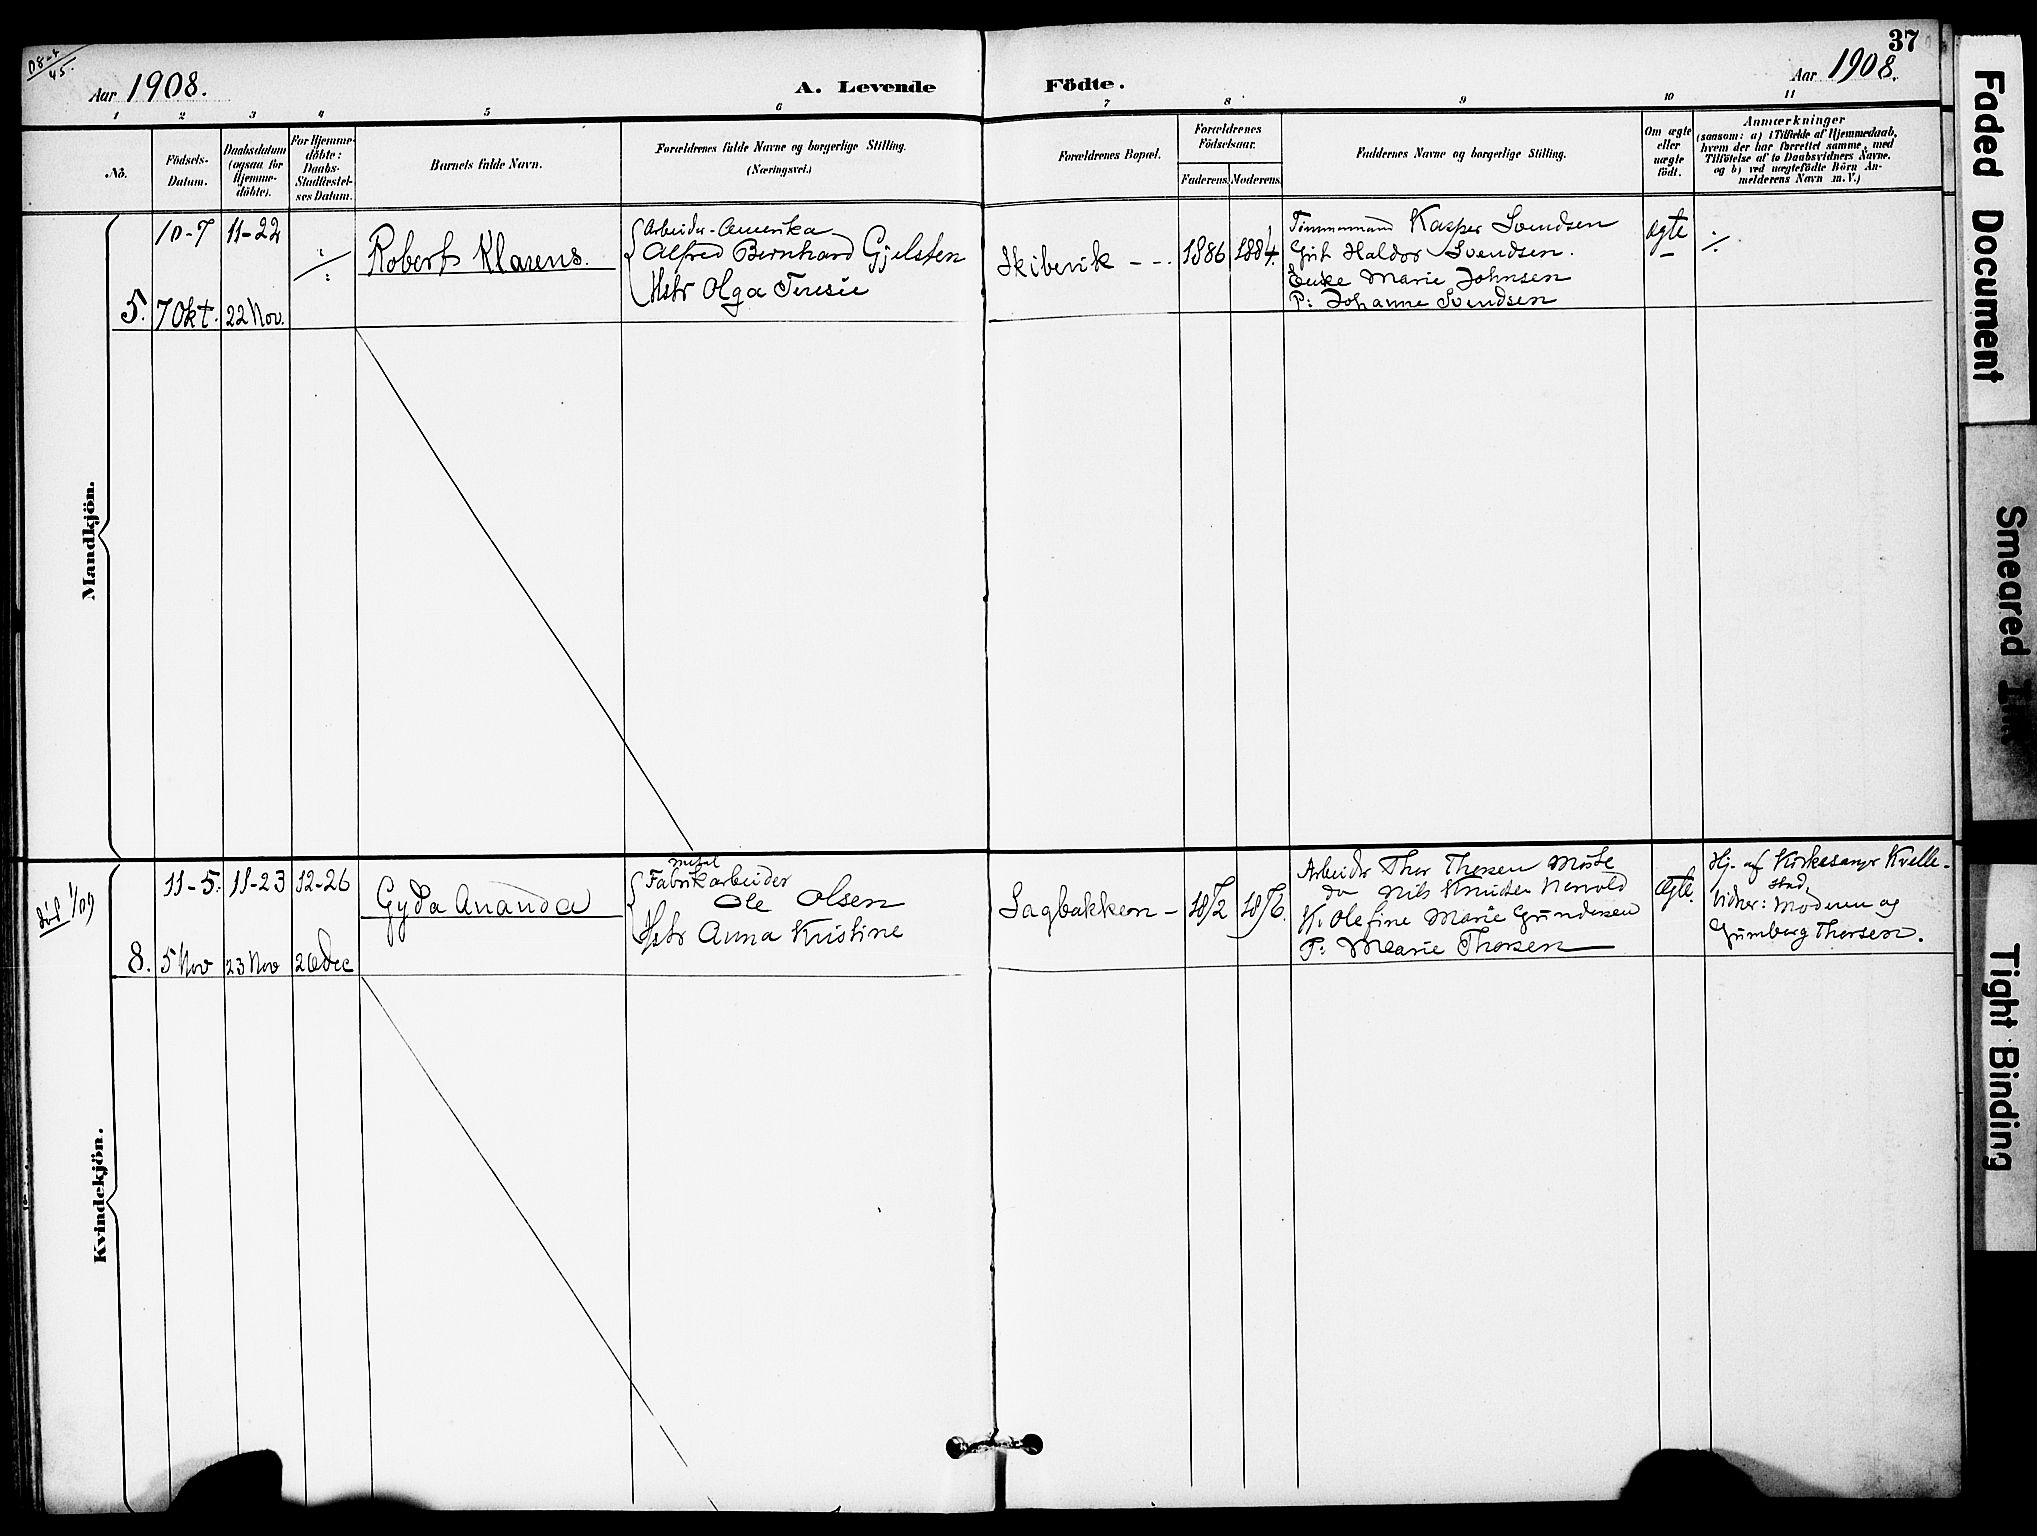 08-4
45.
Aar 1908.
A. Levende
Födte.
Aar 1908.
37
1 2 3 4 5 6 7 8 9 10 11
No.
Födsels-
Datum.
Daabsdatum
(ogsaa for
Hjemme-
döbte).
For Hjemme-
döbte:
Daabs-
Stadfæstel-
ses Datum.
Barnets fulde Navn.
Forældrenes fulde Navne og borgerlige Stilling.
(Næringsvei.)
Forældrenes Bopæl.
Forældrenes
Födselsaar.
Faderens. Moderens.
Faddernes Navne og borgerlige Stilling.
Om ægte
eller
uægte
födt.
Anmærkninger
(saasom: a) i Tilfælde af Hjemmedaab,
hvem der har forrettet samme, med
Tilföielse af to Daabsvidners Navne.
og b) ved uægtefödte Börn An-
melderens Navn m. V.)
Mandkjön.
5.
10-7
7 Okt.
11-22
22 Nov.
Robert Klarens.
Arbeider-Amerika
Alfred Bernhard Gjelsten
Hstr Olga Teresie
Skibevik - - .
1886 1884.
Tømmermand Kasper Svendsen
Grt Haldor Svendsen.
Enke Marie Johnsen
P: Johanne Svendsen
ægte
Kvindekjön.
død 1/1 09
8.
11-5.
5 Nov
11-23
23 Nov
12-26
26 Dec
Gyda Ananda
Fabrikarbeider
Ole Olsen
Hstr Anna Kristine
Sagbakken -
1872 1876.
Arbeider Thor Thorsen Moste
do Nils Knudsen Nervold
K. Olefine Marie Gundersen
P: Marie Thorsen
Ægte.
Hj. af Kirkesanger Kvelle-
stad,
Vidner: Moderen og
Gunborg Thorsen.
Faded Document
Smeared Ink
Tight Binding